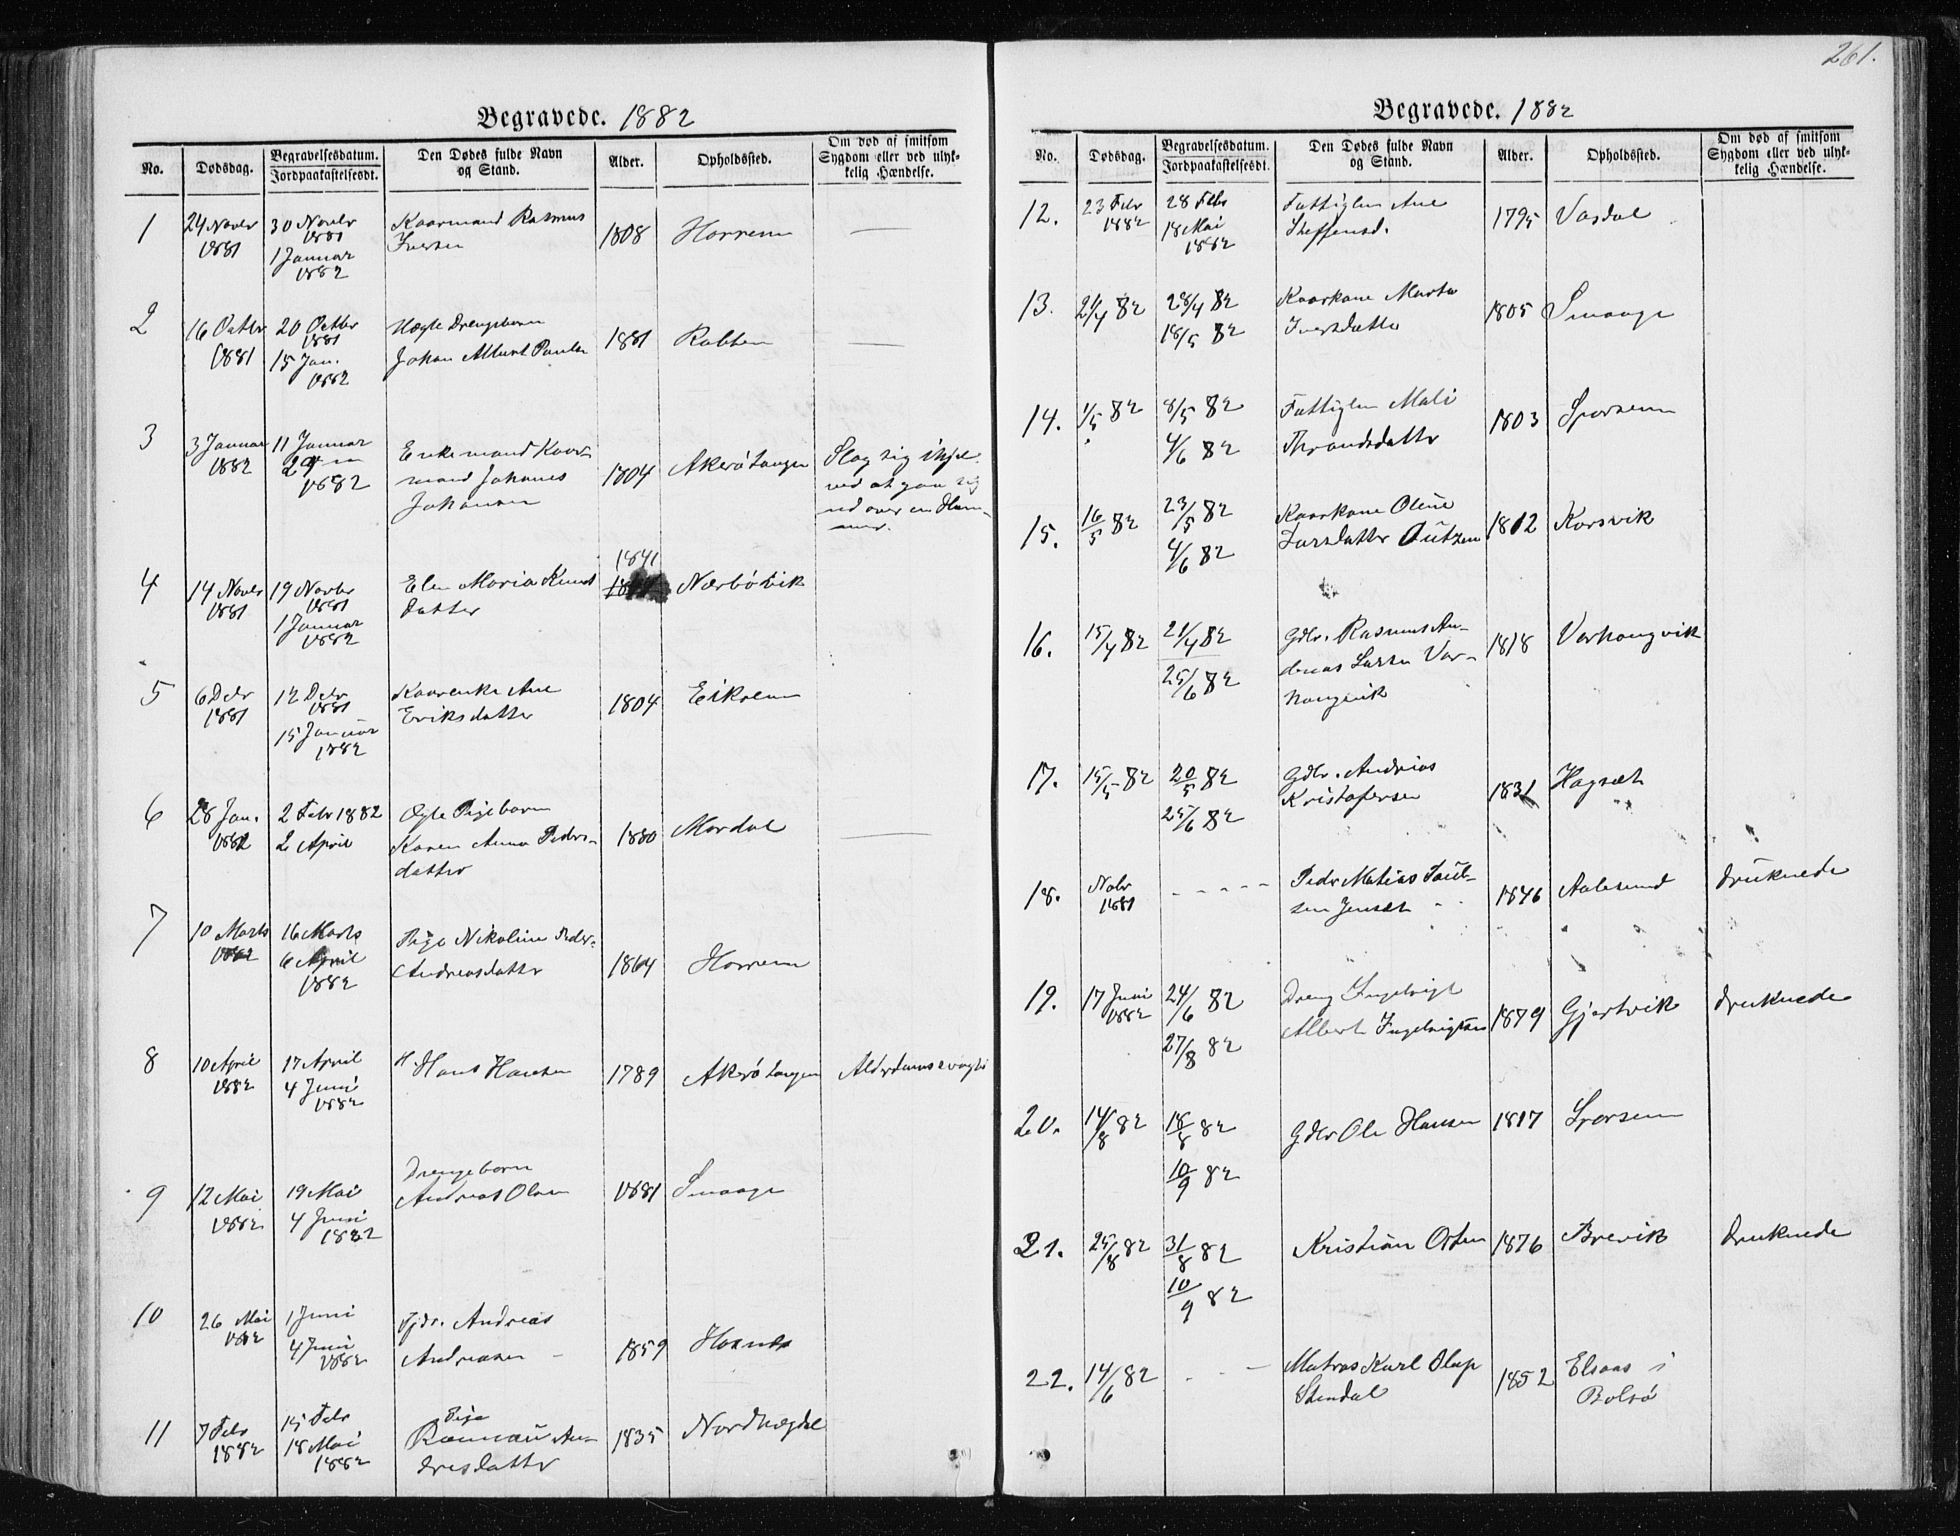 261.
Begravede. 1882
No. Dødsdag. Begravelsesdatum. Jordpaakastelsesdt. Den Dødes fulde Navn og Stand. Alder. Opholdssted. Om død af smitsom Sygdom eller ved ulykkelig Hændelse.
1 24 Novbr 1881 30 Novbr 1881 1 Januar 1882 Kaarmand Rasmus Iversen 1808 Harrem —
2 16 Octbr 1881 20 Octbr 1881 15 Jan. 1882 Uægte Drengebarn Johan Albert 1881 —
3 3 Januar 1882 11 Januar 1882 Enkemand Kaarmand Johannes Johansen 1804 Akerøtangen Slog sig ihjel ved at gaa sig ud over en Hammer.
4 14 Novbr 1881 19 Novbr 1881 1 Januar 1882 Elen Maria Knudsdatter 1841 Nærbøvik
5 6 Debr 1881 12 Debr 1881 15 Januar 1882 Kaarenke Ane Eriksdatter 1804 Eikrem
6 28 Jan. 1882 2 Febr 1882 2 April Ægte Pigebarn Karen Anna Pedersdatter 1880 Mordal —
7 10 Marts 1882 16 Marts 6 April 1882 Pige Nikoline Andreasdatter 1864 Horrem
8 10 April 1882 17 April 4 Juni 1882 Hans Hansen 1789 Akerøtangen Alderdomssvaghed
9 12 Mai 1882 19 Mai 4 Juni 1882 Drengebarn Andreas Olsen 1881 Smaage
10 26 Mai 1882 1 Juni 4 Juni 1882 Andreas Andreasen 1859 Hornes
11 7 Febr 1882 15 Febr 18 Mai 1882 Pige Andresdatter 1835 Nordhægdal
Begravede. 1882
No. Dødsdag. Begravelsesdatum. Jordpaakastelsesdt. Den Dødes fulde Navn og Stand. Alder. Opholdssted. Om død af smitsom Sygdom eller ved ulykkelig Hændelse.
12. 23 Febr 1882 28 Febr 18 Mai 1882 Fattiglem Ane Steffensd. 1795 Vasdal
13. 21/4 82 28/4 82 18/5 82 Kaarkone Marta Iversdatter 1805 Smaage
14. 1/5 82 8/5 82 4/6 82 Fattiglem Mali Throndsdatter 1803 Sporsem
15. 16/5 82 23/5 82 4/6 82 Kaarkone Oline Larsdatter 1812 Korsvik
16. 15/4 82 21/4 82 25/6 82 Gdbr. Rasmus Andreas Larsen Varhaugvik 1818 Varhaugvik
17. 15/5 82 20/5 82 25/6 82 Gdbr. Andrias Kristofersen 1831 Hagsæt
18. Nobr 1881 - - - - - Peder Matias Paulsen Jenset 1846 Aalesund druknede
19. 17 Juni 1882 24/6 82 27/8 82 Dreng Ingebrigt Albert Ingebrigtsen 1879 Gjertvik druknede
20. 14/8 82 18/8 82 10/9 82 Gdbr Ole Hansen 1817 Sporsem
21. 25/8 82 31/8 82 10/9 82 Kristian Olsen 1876 Brevik druknede
22. 14/6 82 - - — Matros Karl Olup Stendal 1852 Elsaas i Bolsø